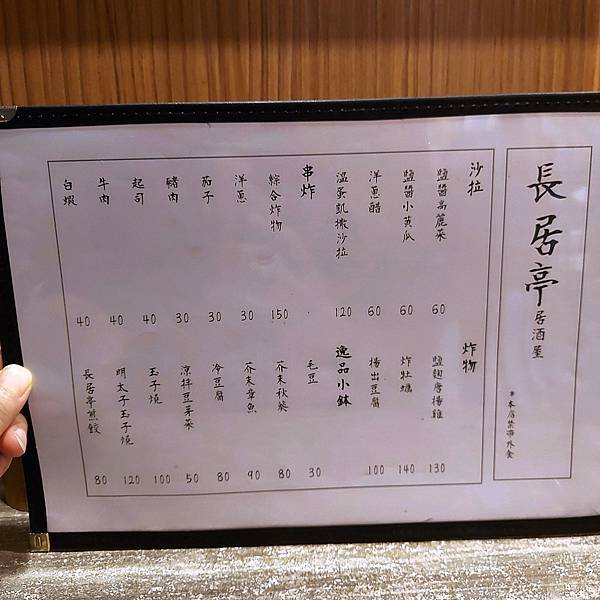 長居亭
居酒屋
*本店禁帶外食
沙拉
鹽醬高麗菜 60
鹽醬小黃瓜 60
洋蔥醋 60
溫蛋凱撒沙拉 120
串炸
綜合炸物 150
洋蔥 30
茄子 30
豬肉 30
起司 40
牛肉 40
白蝦 40
炸物
鹽麴唐揚雞 130
炸牡蠣 140
揚出豆腐 100
逸品小鉢
毛豆 30
芥末秋葵 80
芥末章魚 90
冷豆腐 80
涼拌豆芽菜 50
玉子燒 100
明太子玉子燒 120
長居亭煎餃 80